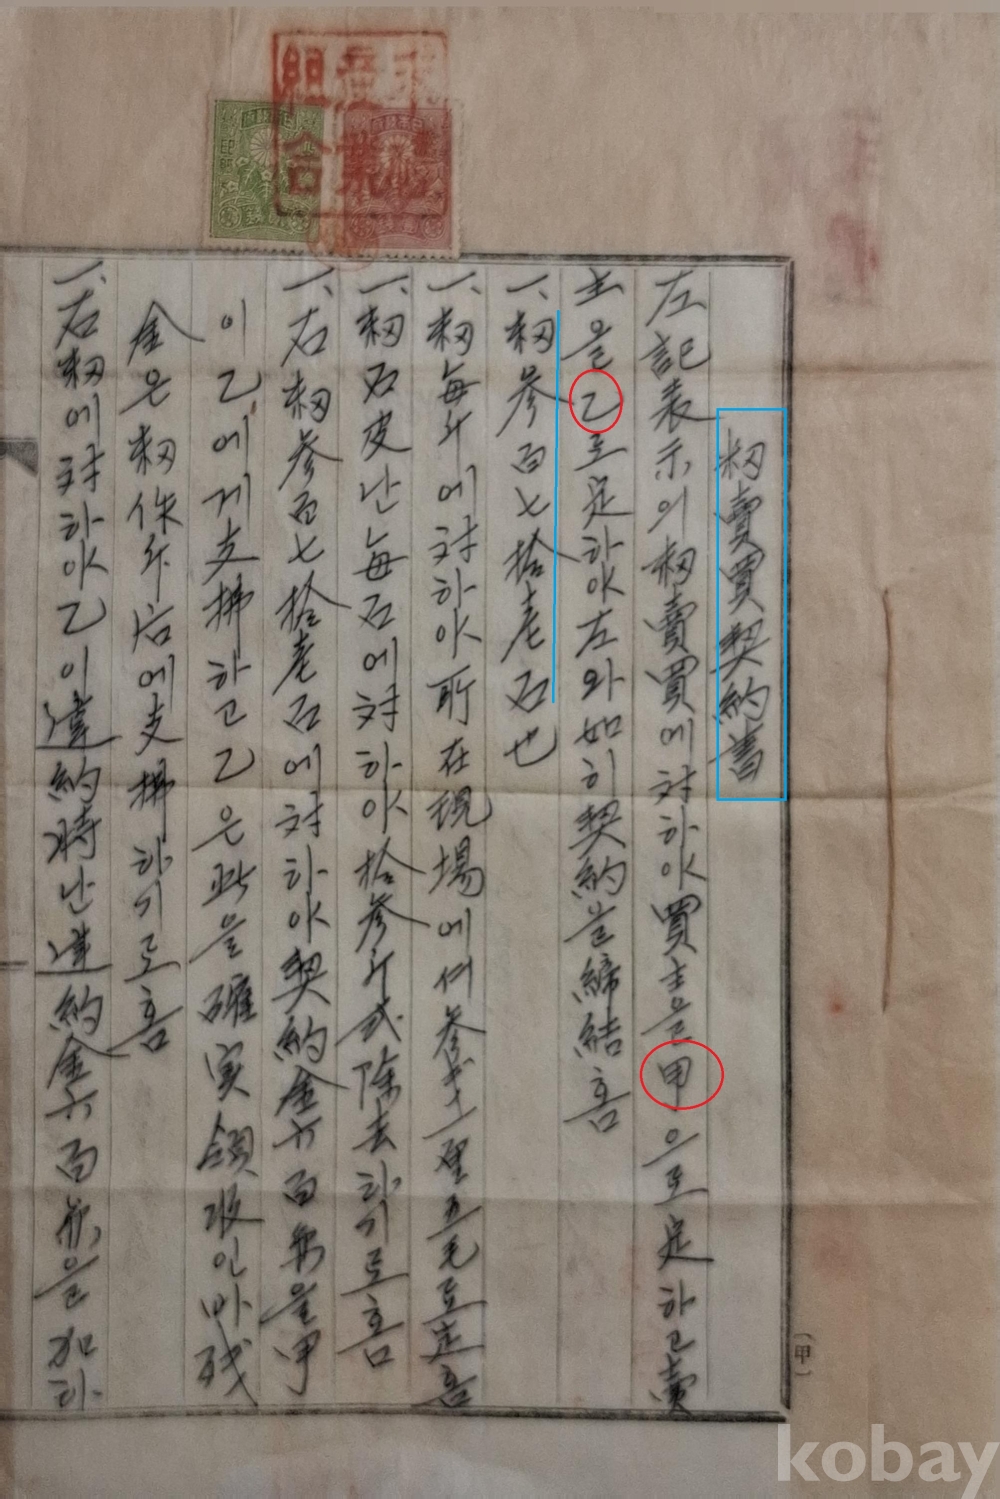 東萊産業組合
籾賣買契約書
左記表示의籾賣買에対하야買主을甲으로定하고賣
主을乙로定하야左와如히契約을締結홈
一、籾參百七拾壱石也
一、籾每斤에対하야所在現場에셔參戔一厘五毛로定홈
一、籾石皮난每石에対하야拾參斤式除去하기로홈
一、右籾參百七拾壱石에対하야契約金六百円을甲
이乙에게支拂하고乙은此을確実領收인바残
金은籾作斤后에支拂하기로홈
一、右籾에対하야乙이違約時난違約金六百円을加하
(甲)
kobay